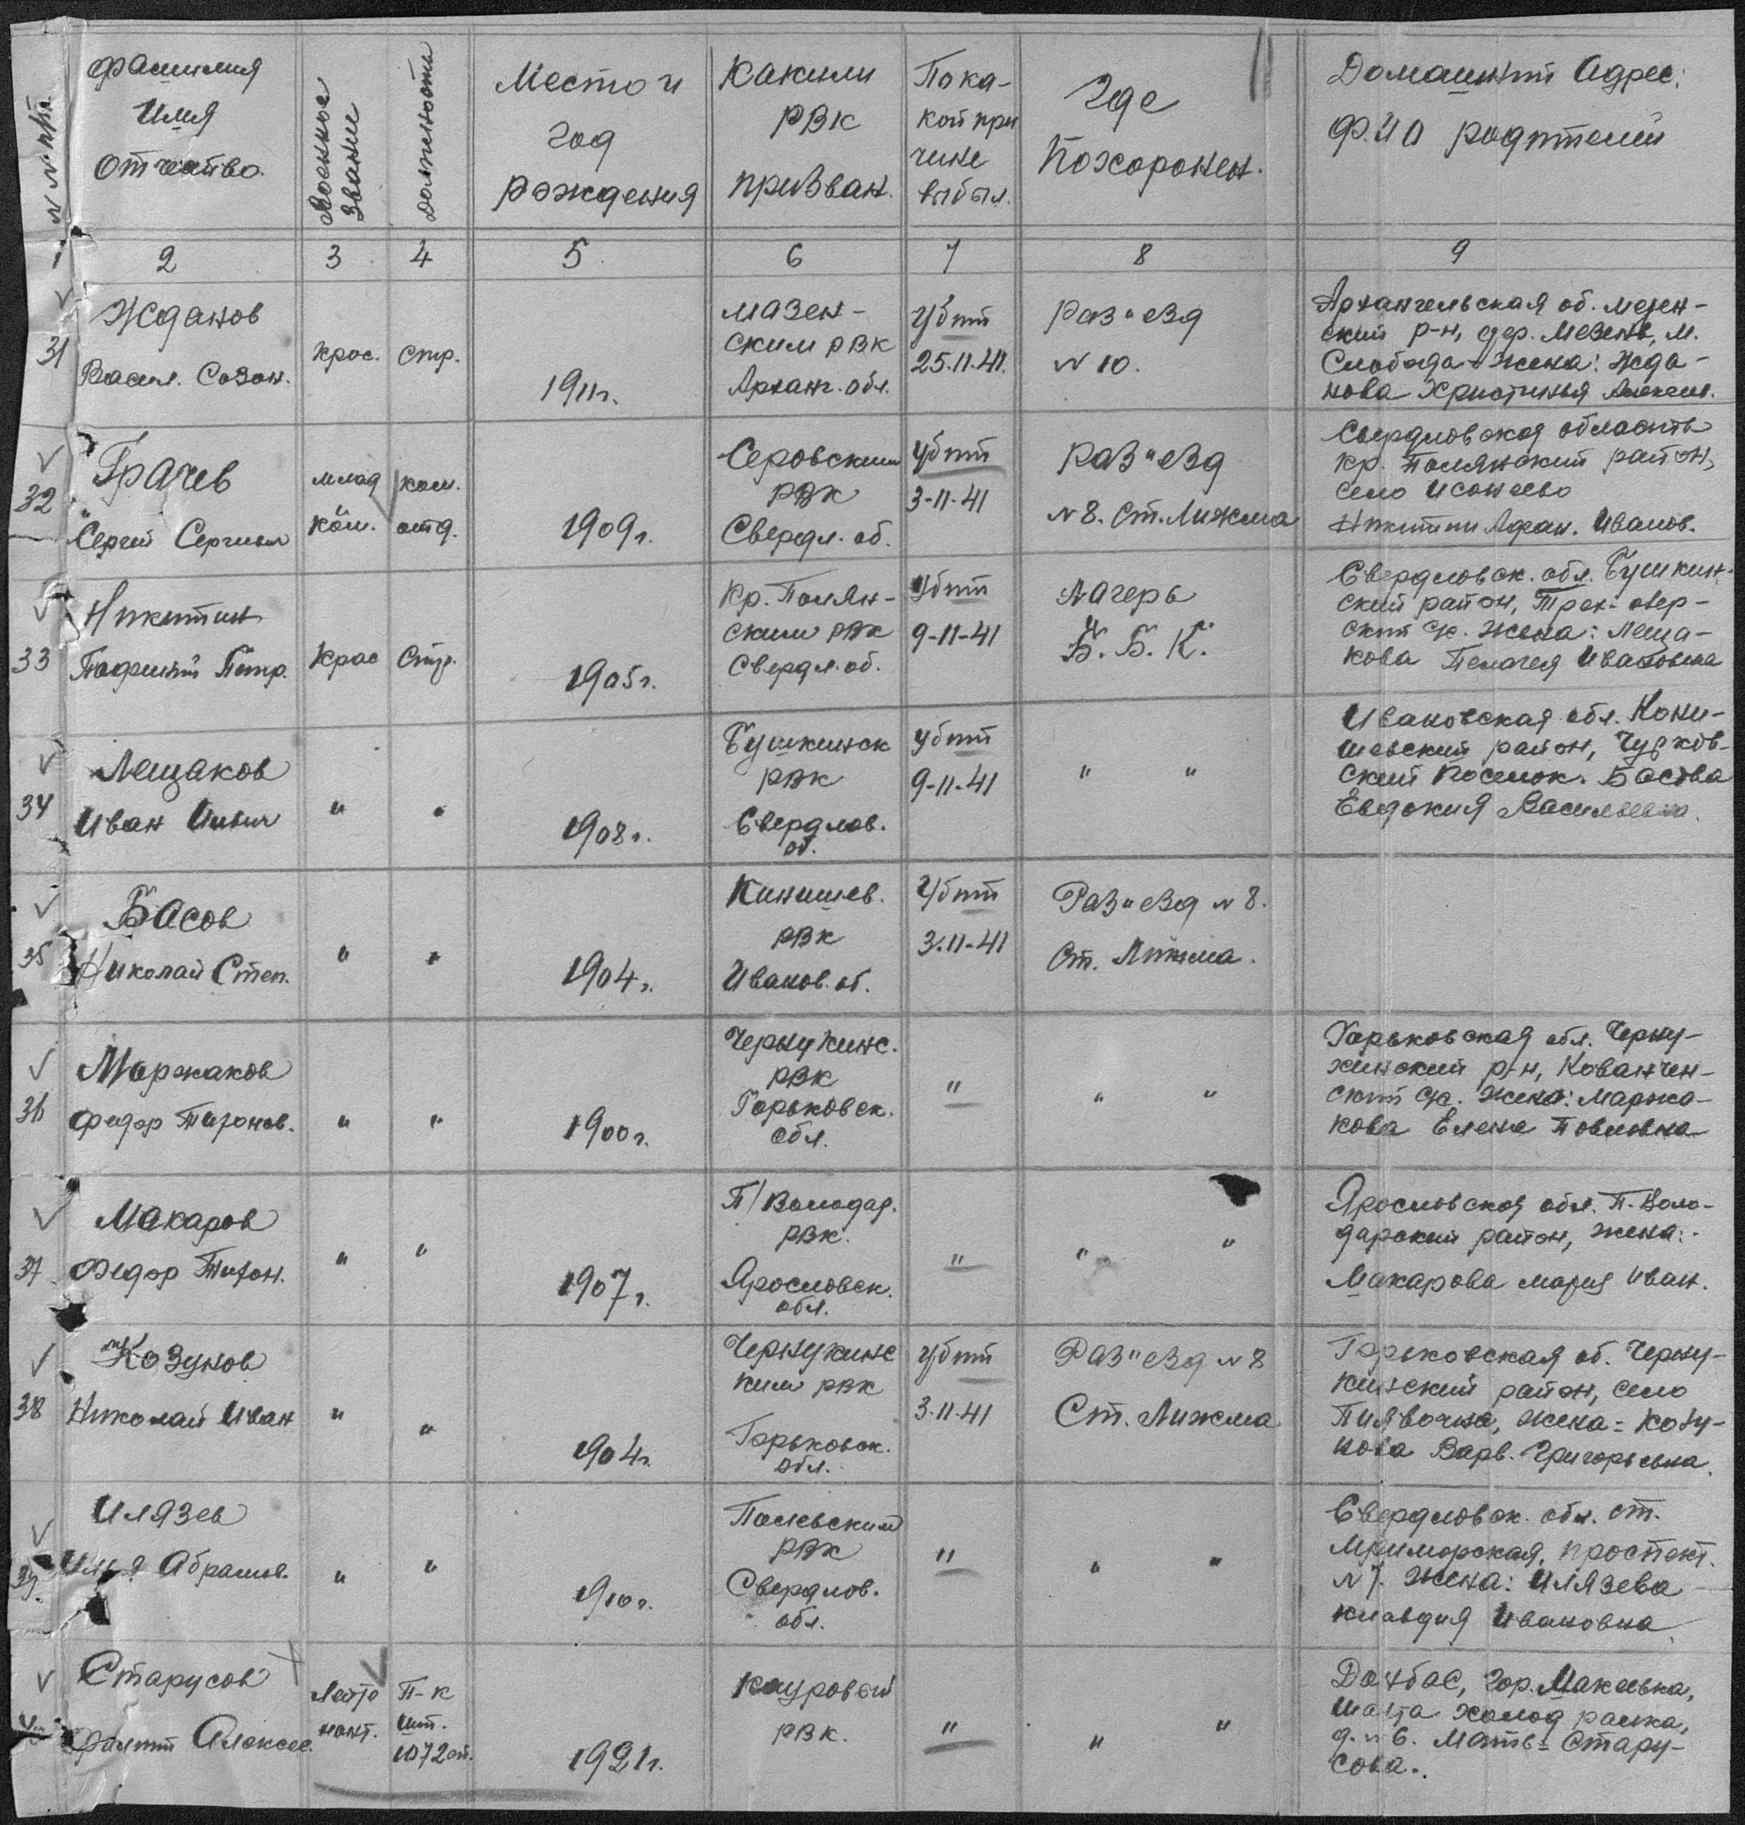 № № п/п.
Фамилия
Имя
Отчество.
Военное
звание
Должность
Место и
год
рождения
Каким
РВК
призван.
По ка-
кой при
чине
выбыл.
Где
похоронен.
Домашний адрес:
Ф.И О родителей
2 3 4 5 6 7 8 9
31
Жданов
Васил. Созон.
Крас. Стр.
1911г.
Мазен-
ским РВК
Арханг. обл.
Убит
25.11.41.
Раз"езд
№ 10.
Архангельская об. Мезен-
ский р-н, дер. Мезень, М.
Слобода Жена: Жда-
нова Христинья Алексеев.
32
Грачев
Сергей Сергеевич
млад ком.
ком. отд.
1909г.
Серовским
РВК
Свердл. об.
Убит
3-11-41
Раз"езд
№ 8. ст. Лижма
Свердловская область
Кр. Полянский район,
село
Никитин Афан. Иванов.
33
Никитин
Петр.
Крас Стр.
1905г.
Кр. Полян-
ским РВК
Свердл. об.
Убит
9-11-41
Лагерь
Б. Б. К.
Свердловск. обл. Бушкин-
ский район,
ский с/с. Жена: Леща-
кова Пелагея Ивановна
34
Лещаков
Иван Ильич
" "
1908г.
Бушкинск
РВК
Свердлов.
об.
Убит
9-11-41
" "
Ивановская обл. Кони-
шевский район, Чурков-
ский поселок. Басова
Евдокия Васильевна.
35
Басов
Николай Степ.
" "
1904г.
Кинишев.
РВК
Иванов. об.
Убит
3.11-41
Раз"езд № 8.
Ст. Лижма.
36
Маржаков
Федор Тихонов.
" "
1900г.
Чернухинс.
РВК
Горьковск.
обл.
"
" "
Харьковская обл. Черну-
хинский р-н, Кованчен-
ский с/с. Жена: Маржа-
кова Елена Павловна
37
Макаров
Федор Тихон.
" "
1907г.
П/Володар.
РВК.
Ярославск.
обл.
"
" "
Ярославская обл. П-Воло-
дарский район, жена:
Макарова Мария Иван.
38
Козунов
Николай Иван
" "
1904г.
Чернухинс
ким РВК
Горьковск.
обл.
Убит
3.11-41
Раз"езд № 8
Ст. Лижма
Горьковская об. Черну-
хинский район, село
жена = Козу-
нова Варв. Григорьевна.
39.
Илязев
Илья Абрамов.
" "
1910г.
Полевским
РВК
Свердлов.
обл.
"
" "
Свердловск. обл. ст.
проспект.
№ 7. Жена: Илязева
Клавдия Ивановна.
Старусов
Алексее.
Лейте
нант.
П-к
шт.
1072
1921г.
РВК.
"
" "
Донбас, гор. Макеевка,
шахта
д. № 6. Мать = Стару-
сова.